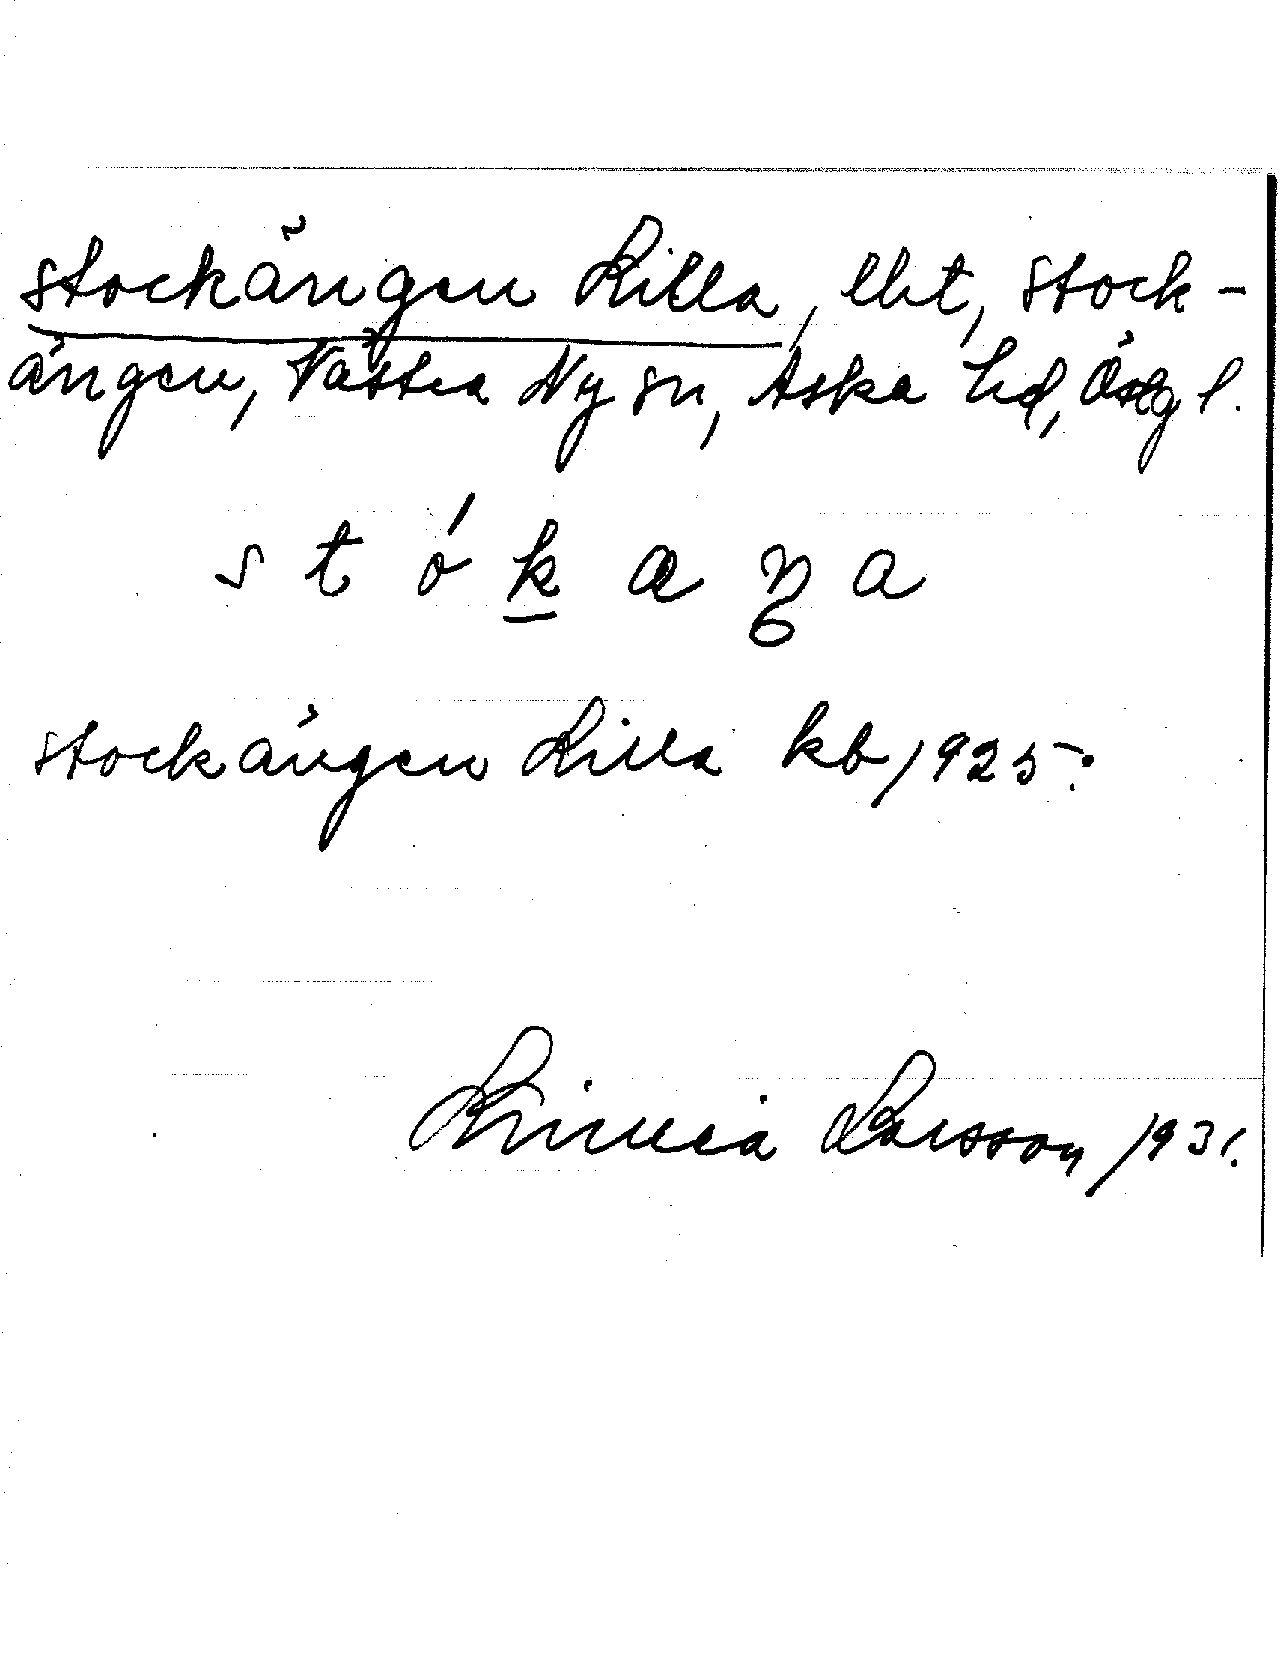 Stockängen Lilla, lht, Stock-
ängen, Västra Ny sn, Aska hd, Östgl.
stókaŋa
Stockängen Lilla kb 1925.
Linnea Larsson 1931.